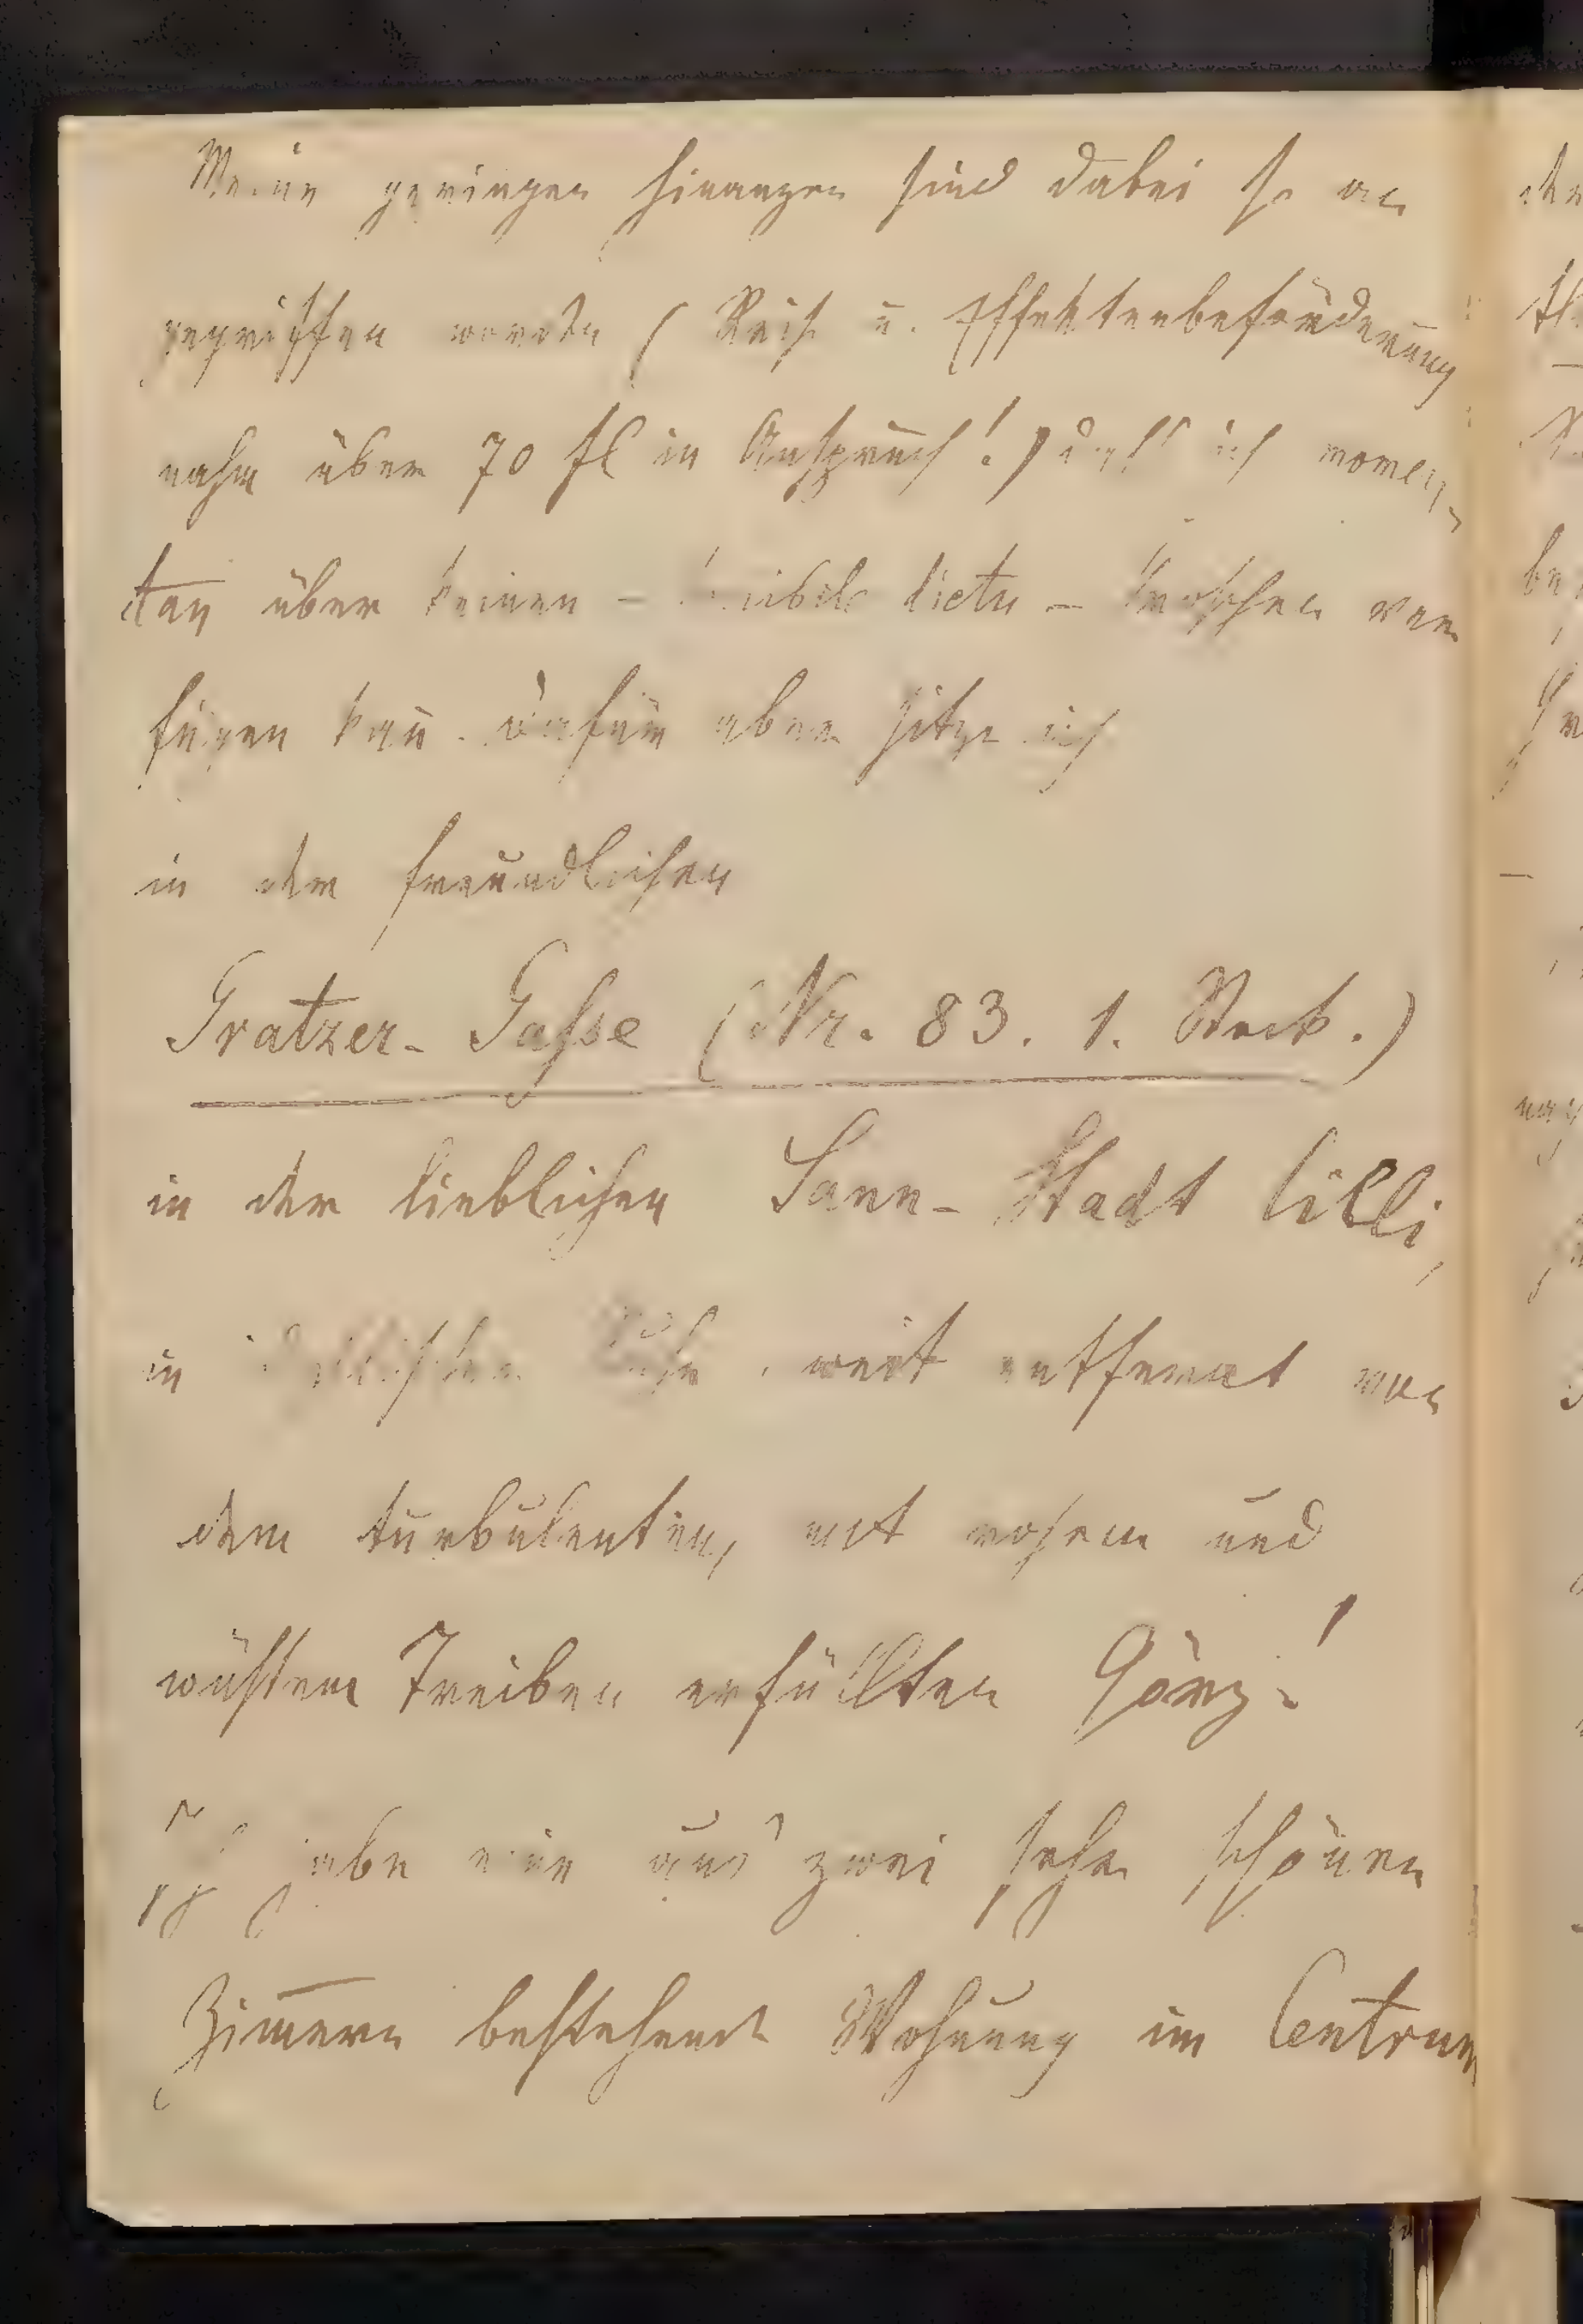 Meine geringen Finanzen sind dabei so an
gegriffen worden (Reise u. Effektenbeförderung
nahm über 70 fl in Anspruch!) daß ich momen-
tan über keinen – horribile dictu – Kreuzer ver
fügen kann. Dafür aber sitze ich
in der freundlichen
Gratzer-Gasse (Nr. 83. 1. Stock.)
in der lieblichen Sann-Stadt Cilli,
in idyllischer Ruhe, weit entfernt von
dem turbulenten, mit rohem und
wüstem Treiben erfüllten Görz!
Ich habe eine aus zwei sehr schönen
Zimmern bestehende Wohnung im Centrum